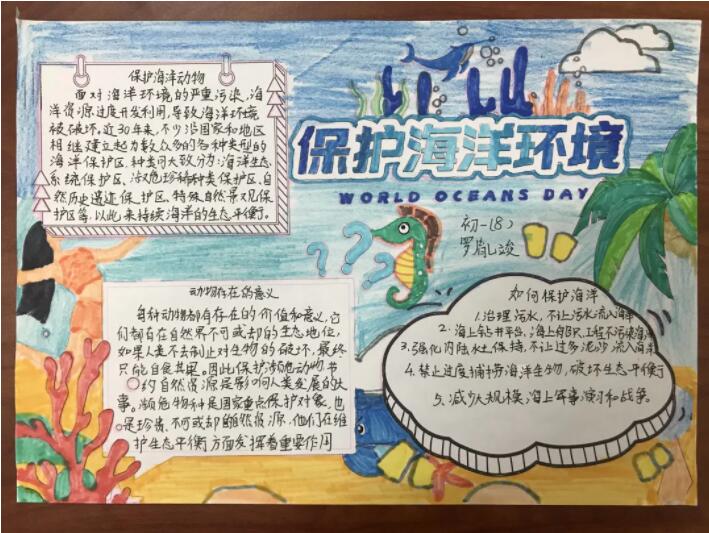 保护海洋动物
面对海洋环境的严重污染,海
洋资源过度开发利用,导致海洋环境
被破坏,近30年来,不少沿国家和地区
相继建立起为数众多的各种类型的
海洋保护区,种类可大致分为:海洋生态
系统保护区、濒危珍稀种类保护区、自
然历史遗迹保护区、特殊自然景观保
护区等,以此来持续海洋的生态平衡。
LI LU
保护海洋环境
WORLD OCEANS DAY
初一(8)
? ? ?
动物存在的意义
每种动物都有存在的价值和意义,它
们都有在自然界不可或却的生态地位,
如果人类不去制止对生物的破坏,最终
只能自食其果。因此保护濒危动物节
约自然资源是影响人类发展的大
事。濒危物种是国家重点保护对象,也
是珍贵、不可或却的自然资源,他们在维
护生态平衡方面发挥着重要作用
如何保护海洋
1.治理污水,不让污水流入海洋
2.海上钻井平台,海上
3.强化内陆水土保持,不让过多泥沙流入海
4.禁止过度捕捞海洋生物,破坏生态平衡
5.减少大规模海上军事演习和战争